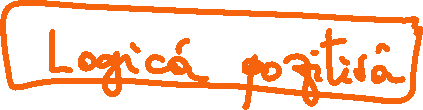 Logică pozitivă